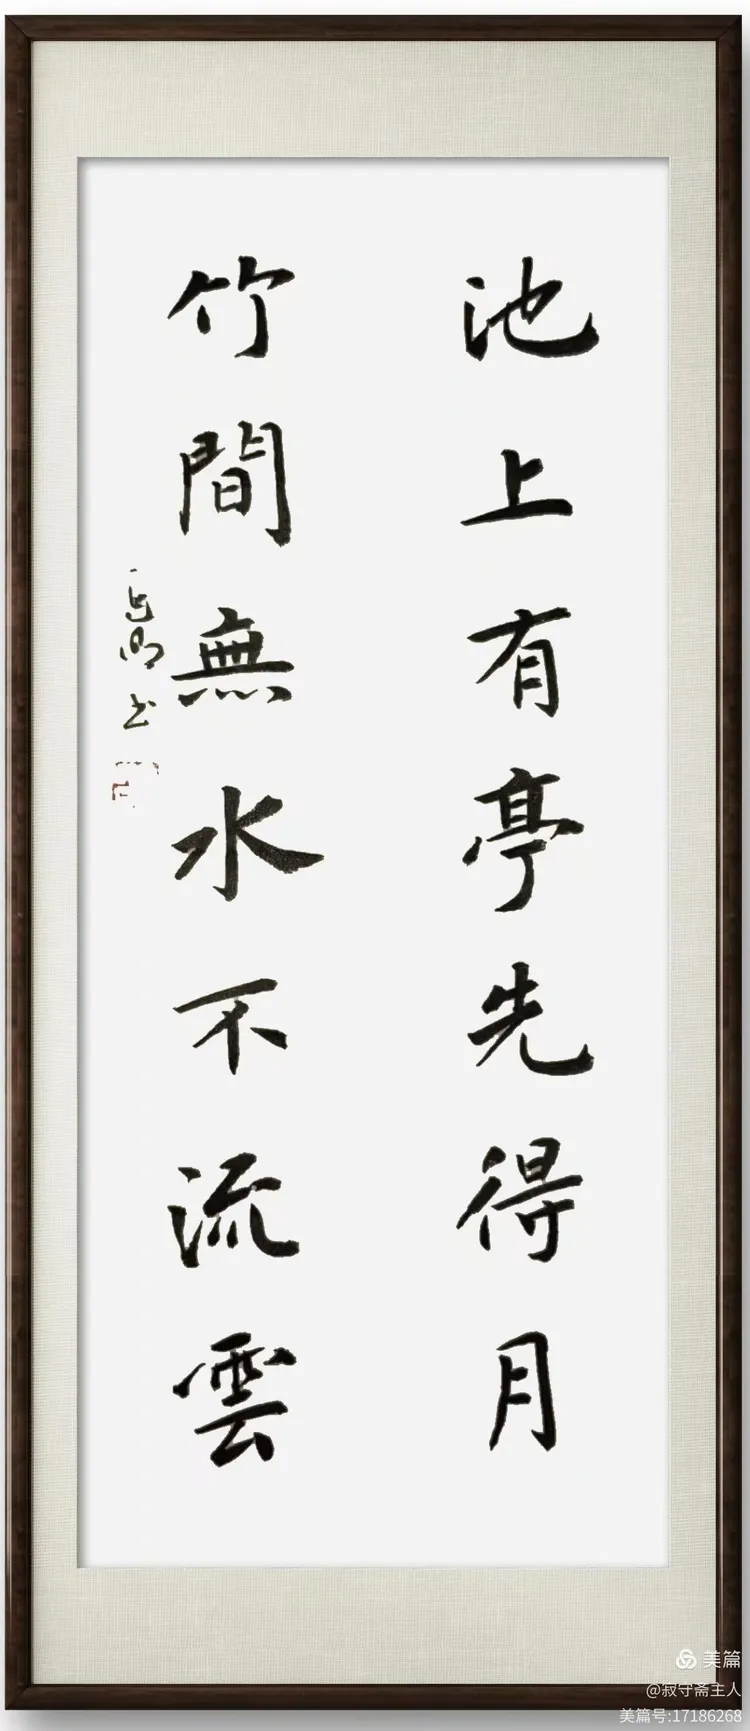 池上有亭先得月
竹間無水不流雲
美篇
@寂守斋主人
美篇号:17186268